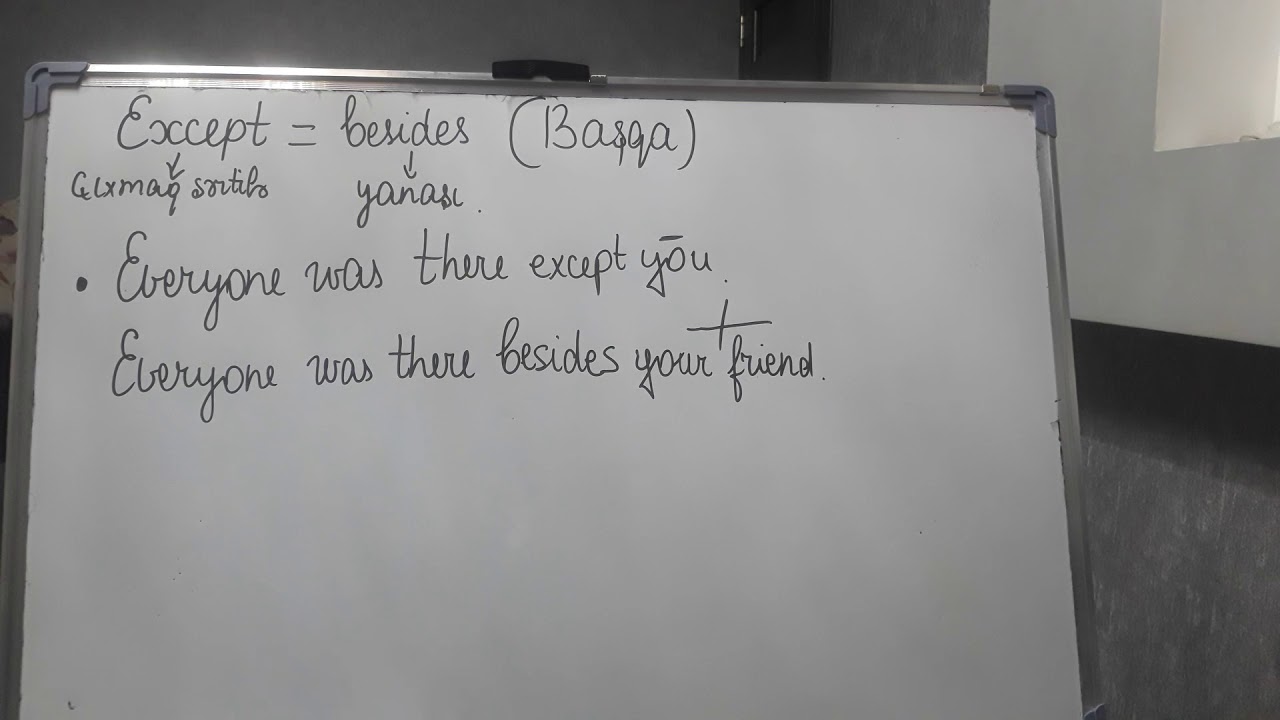 Except = besides (Başqa)
çıxmaq şərtilə yanaşı.
• Everyone was there except you.
Everyone was there besides your friend.